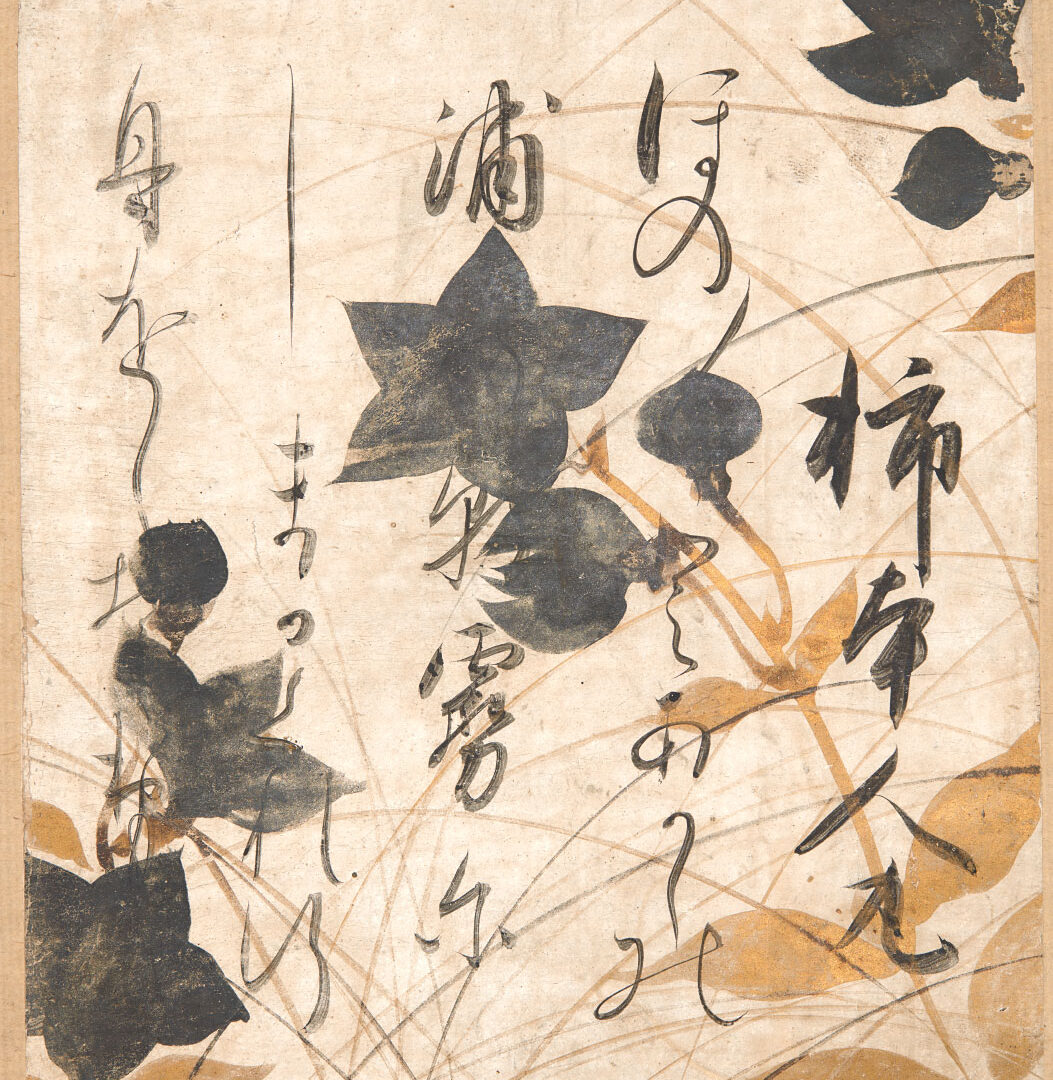 柿本人丸
ほの〱とあかしの
浦の朝霧に
しまかくれ行
舟をしそ